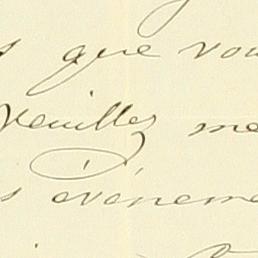 s que vou
Veuillez me
s événeme